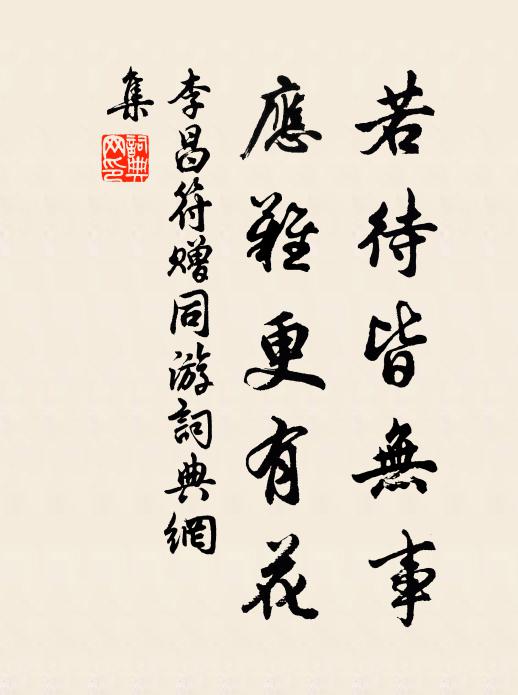 若待皆無事
應難更有花
李昌符赠同游詞典網
集
詞典網印